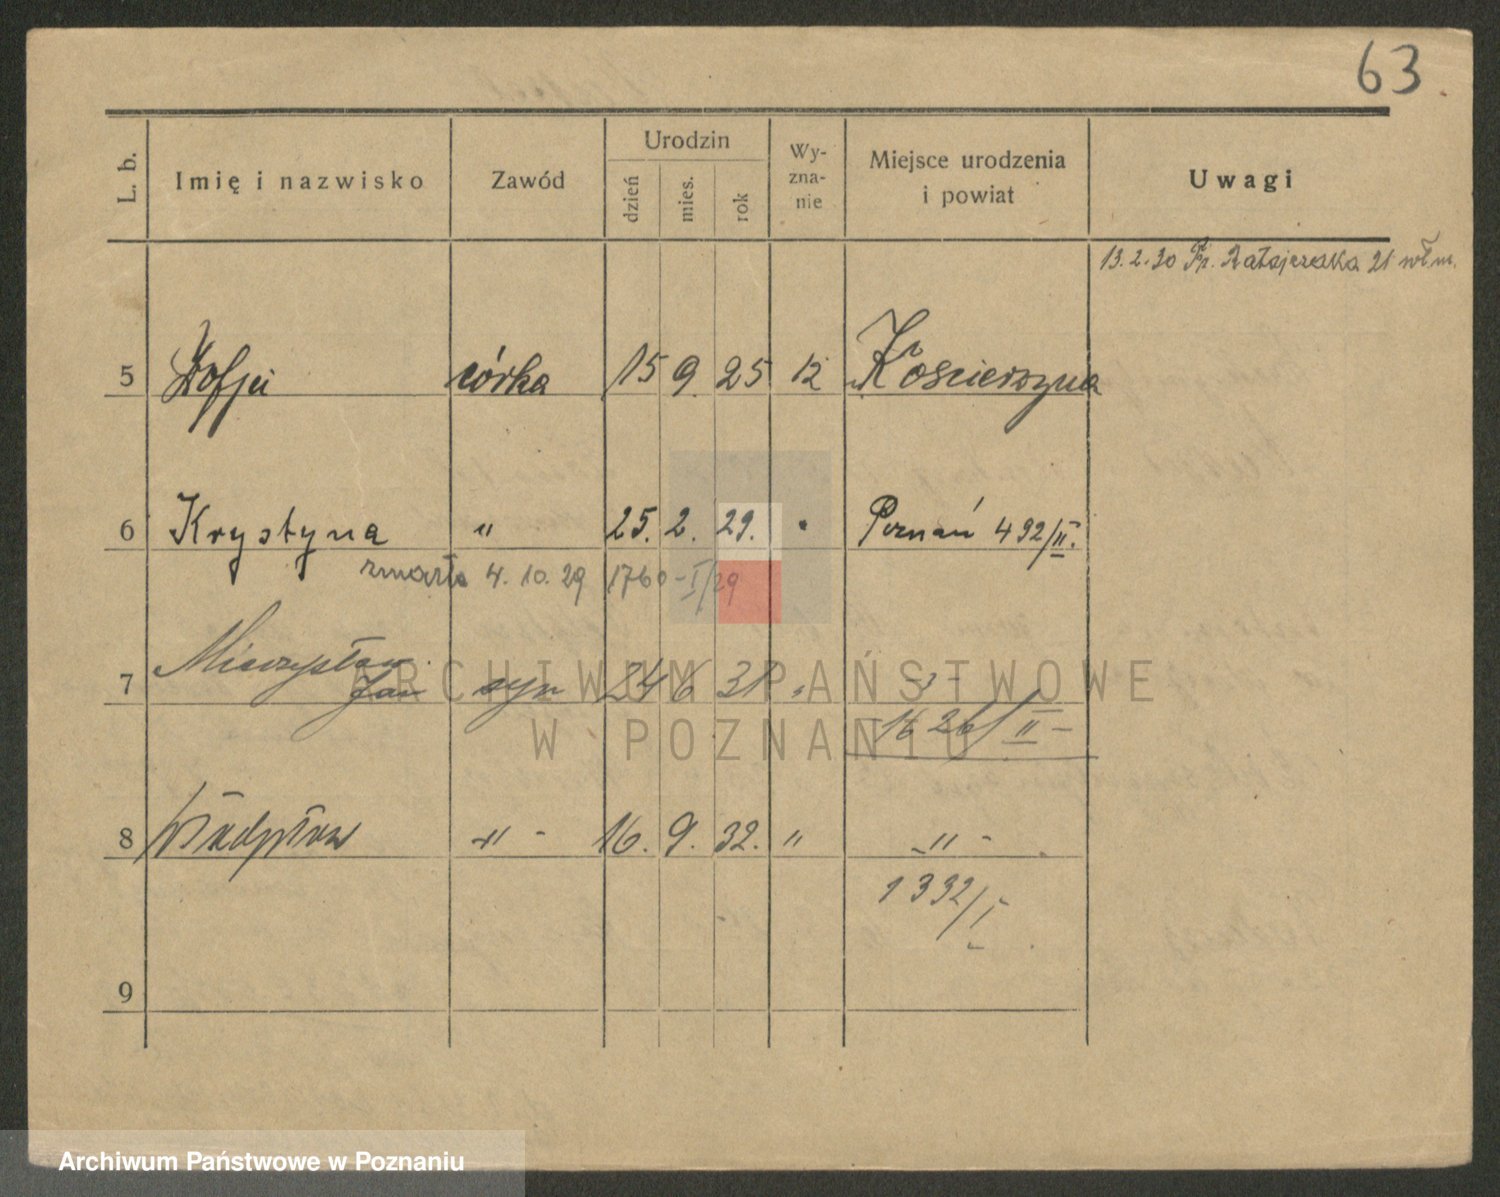 63
L. b. Imię i nazwisko Zawód Urodzin dzień mies. rok Wy-zna-nie Miejsce urodzenia i powiat Uwagi
13. 2. 30 Fr. Ratajczaka 21 wł. m.
5 córka 15 9 25 Kościerzyna
6 Krystyna " 25. 2. 29. " Poznań 492/II.
zmarła 4. 10. 29 1760-I/29
7 Mieczysław Jan syn 24 6 31 " - " -
1626/II -
8 Władysław - " - 16. 9. 32. " - " -
1332/I
9
ARCHIWUM PAŃSTWOWE
W POZNANIU
Archiwum Państwowe w Poznaniu